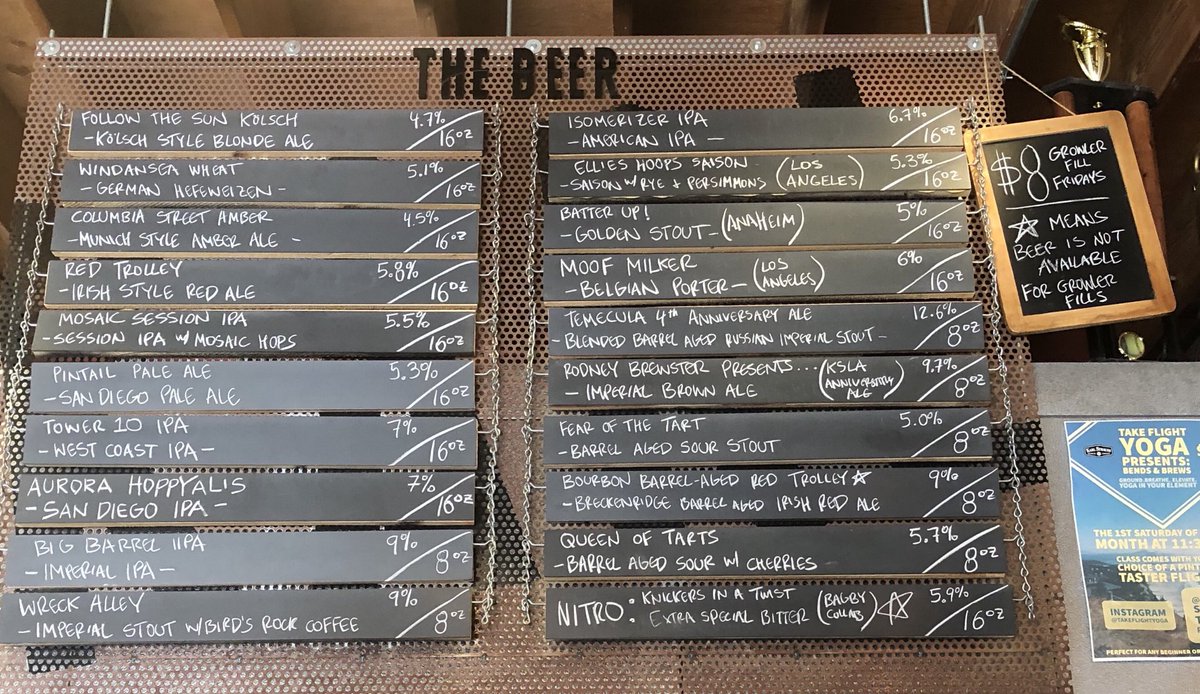 THE BEER
FOLLOW THE SUN KÖLSCH 4.7%
-KÖLSCH STYLE BLONDE ALE 16oz
WINDANSEA WHEAT 5.1%
-GERMAN HEFEWEIZEN- 16oz
COLUMBIA STREET AMBER 4.5%
-MUNICH STYLE AMBER ALE - 16oz
RED TROLLEY 5.8%
-IRISH STYLE RED ALE 16oz
MOSAIC SESSION IPA 5.5%
-SESSION IPA w/ MOSAIC HOPS 16oz
PINTAIL PALE ALE 5.3%
-SAN DIEGO PALE ALE 16oz
TOWER 10 IPA 7%
-WEST COAST IPA- 16oz
AURORA HOPPYALIS 7%
-SAN DIEGO IPA- 16oz
BIG BARREL IIPA 9%
-IMPERIAL IPA- 8oz
WRECK ALLEY 9%
-IMPERIAL STOUT w/BIRD'S ROCK COFFEE 8oz
ISOMERIZER IPA 6.7%
-AMERICAN IPA- 16oz
ELLIES HOOPS SAISON (LOS ANGELES) 5.3%
-SAISON w/ RYE + PERSIMMONS 16oz
BATTER UP! 5%
-GOLDEN STOUT- (ANAHEIM) 16oz
MOOF MILKER (LOS ANGELES) 6%
-BELGIAN PORTER- 16oz
TEMECULA 4th ANNIVERSARY ALE 12.6%
-BLENDED BARREL AGED RUSSIAN IMPERIAL STOUT- 8oz
RODNEY BREWSTER PRESENTS... (KSLA ANNIVERSITY ALE) 9.7%
-IMPERIAL BROWN ALE 8oz
FEAR OF THE TART 5.0%
-BARREL AGED SOUR STOUT 8oz
BOURBON BARREL-AGED RED TROLLEY ☆ 9%
-BRECKENRIDGE BARREL AGED IRISH RED ALE 8oz
QUEEN OF TARTS 5.7%
-BARREL AGED SOUR w/ CHERRIES 8oz
NITRO: KNICKERS IN A TWIST (BAGBY COLLAB) ☆ 5.9%
EXTRA SPECIAL BITTER 16oz
$8 GROWLER
FILL
FRIDAYS
☆ MEANS
BEER IS NOT
AVAILABLE
FOR GROWLER
FILLS
TAKE FLIGHT
YOGA
PRESENTS:
BENDS & BREWS
GROUND, BREATHE, ELEVATE.
YOGA IN YOUR ELEMENT
THE 1ST SATURDAY OF
MONTH AT 11:3
CLASS COMES WITH
CHOICE OF A PINT
TASTER FLIG
INSTAGRAM
@TAKEFLIGHTYOGA
PERFECT FOR ANY BEGINNER